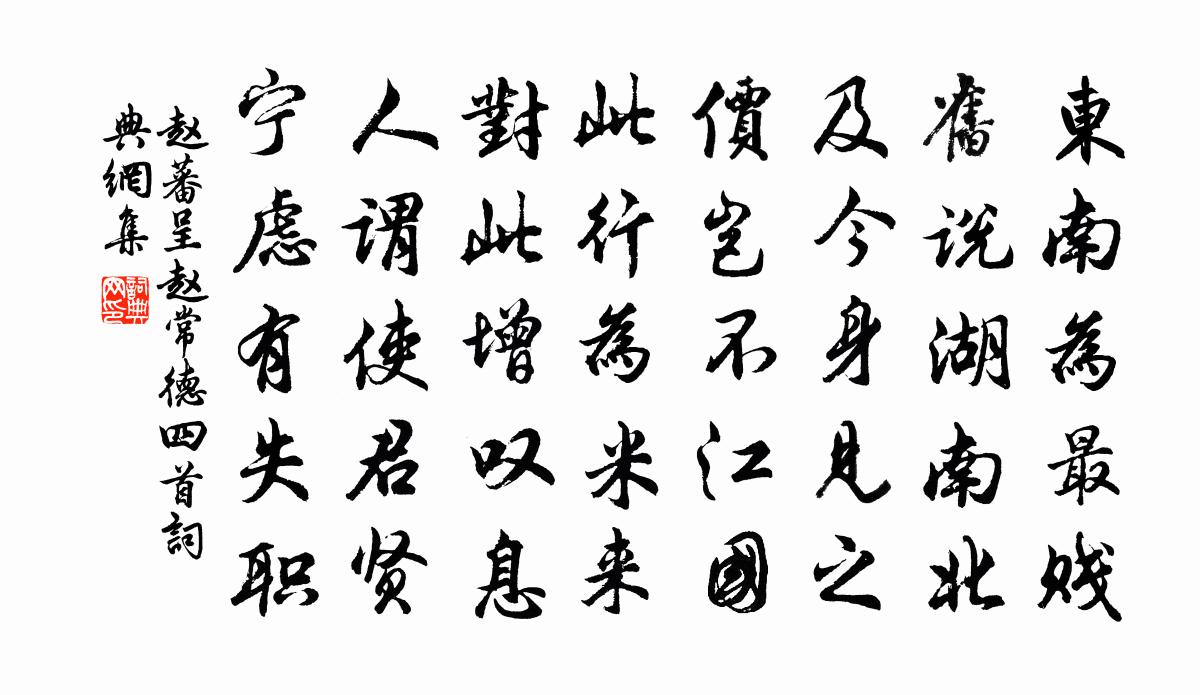 東南為最贱
舊说湖南北
及今身見之
價岂不江國
此行為米来
對此增叹息
人谓使君贤
宁虑有失职
赵蕃呈赵常德四首詞
典網集
詞典
网印